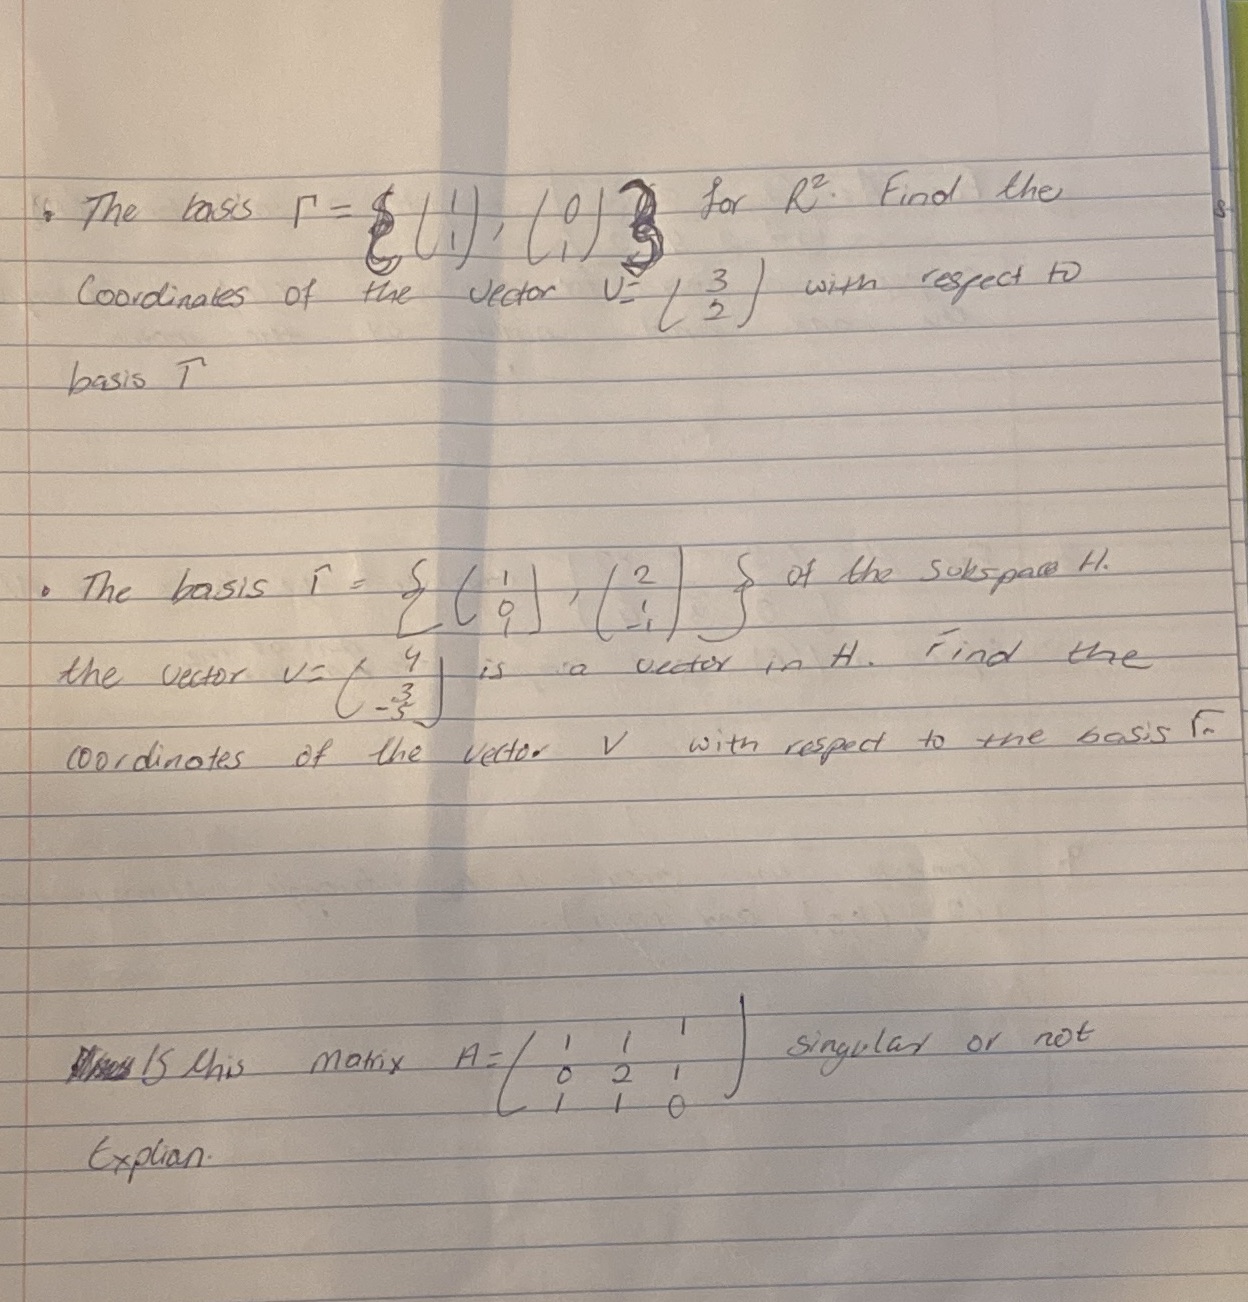 The basis Γ = { (1 1), (0 1) } for R². Find the
Coordinates of the vector v = (3 2) with respect to
basis Γ
• The basis Γ = { (1 0 1), (2 1 -1) } of the subspace H.
the vector v = (4 3 -5) is a vector in H. Find the
coordinates of the vector V with respect to the basis Γ.
Is this matrix A = ( 1 1 1
0 2 1
1 1 0 ) singular or not
Explian.